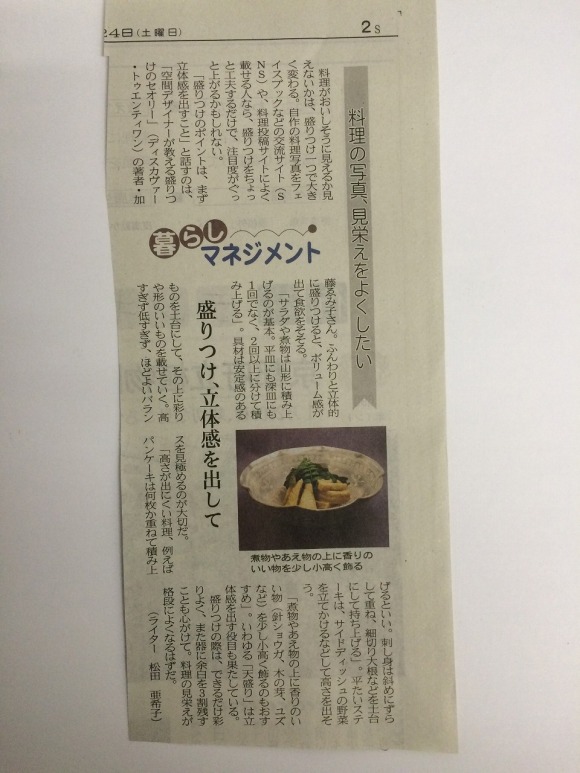 24日(土曜日)
2s
料理の写真、見栄えをよくしたい
料理がおいしそうに見えるか見
えないかは、盛りつけ一つで大き
く変わる。自作の料理写真をフェ
イスブックなどの交流サイト(S
NS)や、料理投稿サイトによく
載せる人なら、盛りつけをちょっ
と工夫するだけで、注目度がぐっ
と上がるかもしれない。
「盛りつけのポイントは、まず
立体感を出すこと」と話すのは、
「空間デザイナーが教える盛りつ
けのセオリー」(ディスカヴァー
・トゥエンティワン)の著者・加
暮らし
マネジメント
藤ゑみ子さん。ふんわりと立体的
に盛りつけると、ボリューム感が
出て食欲をそそる。
「サラダや煮物は山形に積み上
げるのが基本。平皿にも深皿にも
1回でなく、2回以上に分けて積
み上げる」。具材は安定感のある
盛りつけ、立体感を出して
ものを土台にして、その上に彩り
や形のいいものを載せていく。高
すぎず低すぎず、ほどよいバラン
スを見極めるのが大切だ。
「高さが出にくい料理、例えば
パンケーキは何枚か重ねて積み上
煮物やあえ物の上に香りの
いい物を少し小高く飾る
げるといい。刺し身は斜めにずら
して重ね、細切り大根などを土台
にして持ち上げる」。平たいステ
ーキは、サイドディッシュの野菜
を立てかけるなどして高さを出そ
う。
「煮物やあえ物の上に香りのい
い物(針ショウガ、木の芽、ユズ
など)を少し小高く飾るのもおす
すめ」。いわゆる「天盛り」は立
体感を出す役目も果たしている。
盛りつけの際は、できるだけ彩
りよく、また器に余白を3割残す
ことも心がけて。料理の見栄えが
格段によくなるはずだ。
(ライター 松田 亜希子)